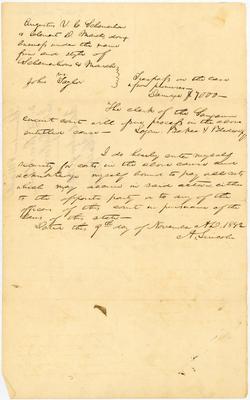 Augustus V. C. Schenchen
& Clement B. March doing
business under the name
firm and style of
Schenchen & March
vs
John Taylor
Trespass on the case
upon promises—
Damage $7000—
The clerk of the
circuit court will issue process in the above
entitled cause— Logan, Baker & Bledsoe
I do hereby enter myself
security for costs in the above cause and
acknowledge myself bound to pay all costs
which may accrue in said action either
to the opposite party or to any of the
officers of this court in pursuance of the
laws of this state—
Dated this 9th day of November A.D. 1842
A. Lincoln